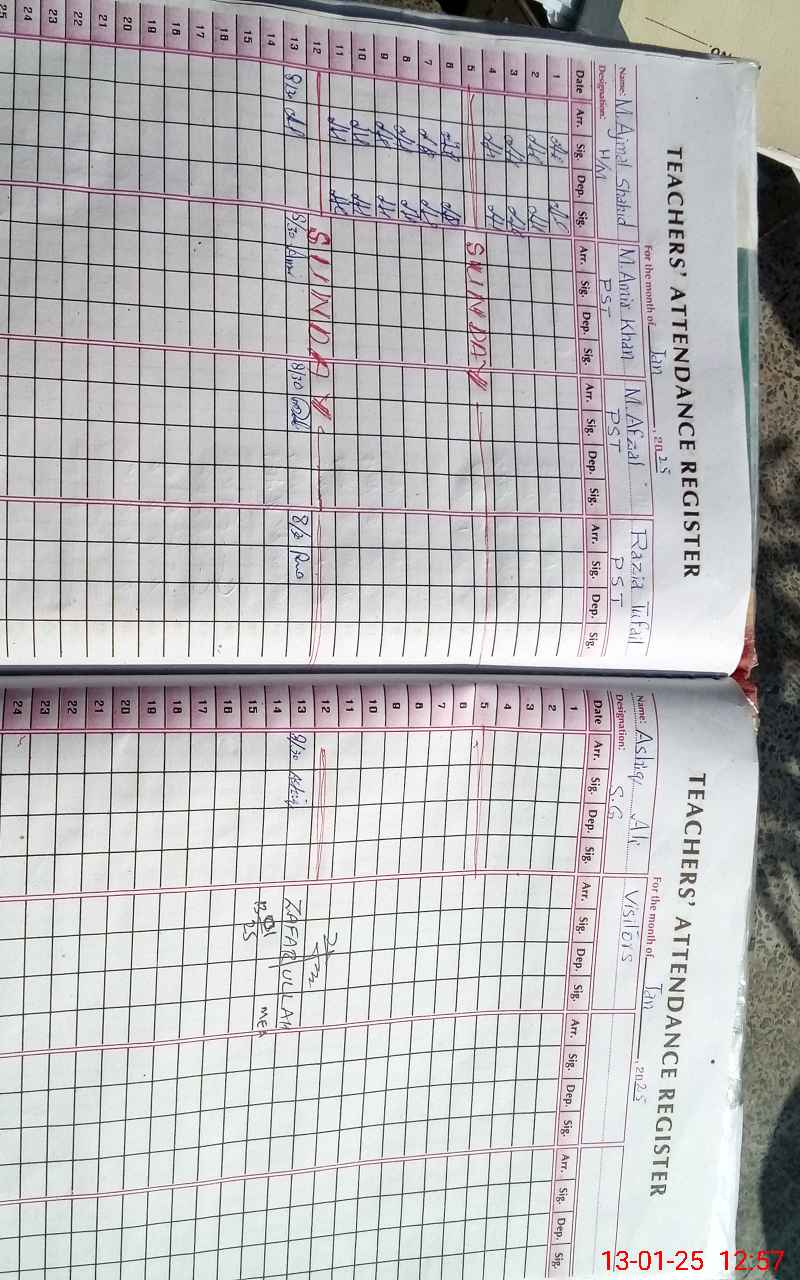 TEACHERS' ATTENDANCE REGISTER
For the month of Jan, 2025
Name: M.Ajmal Shahid M.Amir Khan M.Afzal Razia Tufail
Designation: H/M PST PST PST
Date Arr. Sig. Dep. Sig. Arr. Sig. Dep. Sig. Arr. Sig. Dep. Sig. Arr. Sig. Dep. Sig.
1
2
3
4
5 SUNDAY
6
7
8
9
10
11
12 SUNDAY
13 8/30 8/30 Amir 8/30 8/30
14
15
16
17
18
19
20
21
22
23
24
25
TEACHERS' ATTENDANCE REGISTER
For the month of Jan, 2025
Name: Ashiq Ali Visitors
Designation: S.G
Date Arr. Sig. Dep. Sig. Arr. Sig. Dep. Sig. Arr. Sig. Dep. Sig. Arr. Sig. Dep. Sig.
1
2
3
4
5
6
7
8
9
10
11
12
13 8/30 Ashiq ZAFAR ULLAH
14 MEA
15
16
17
18
19
20
21
22
23
24
13-01-25 12:57